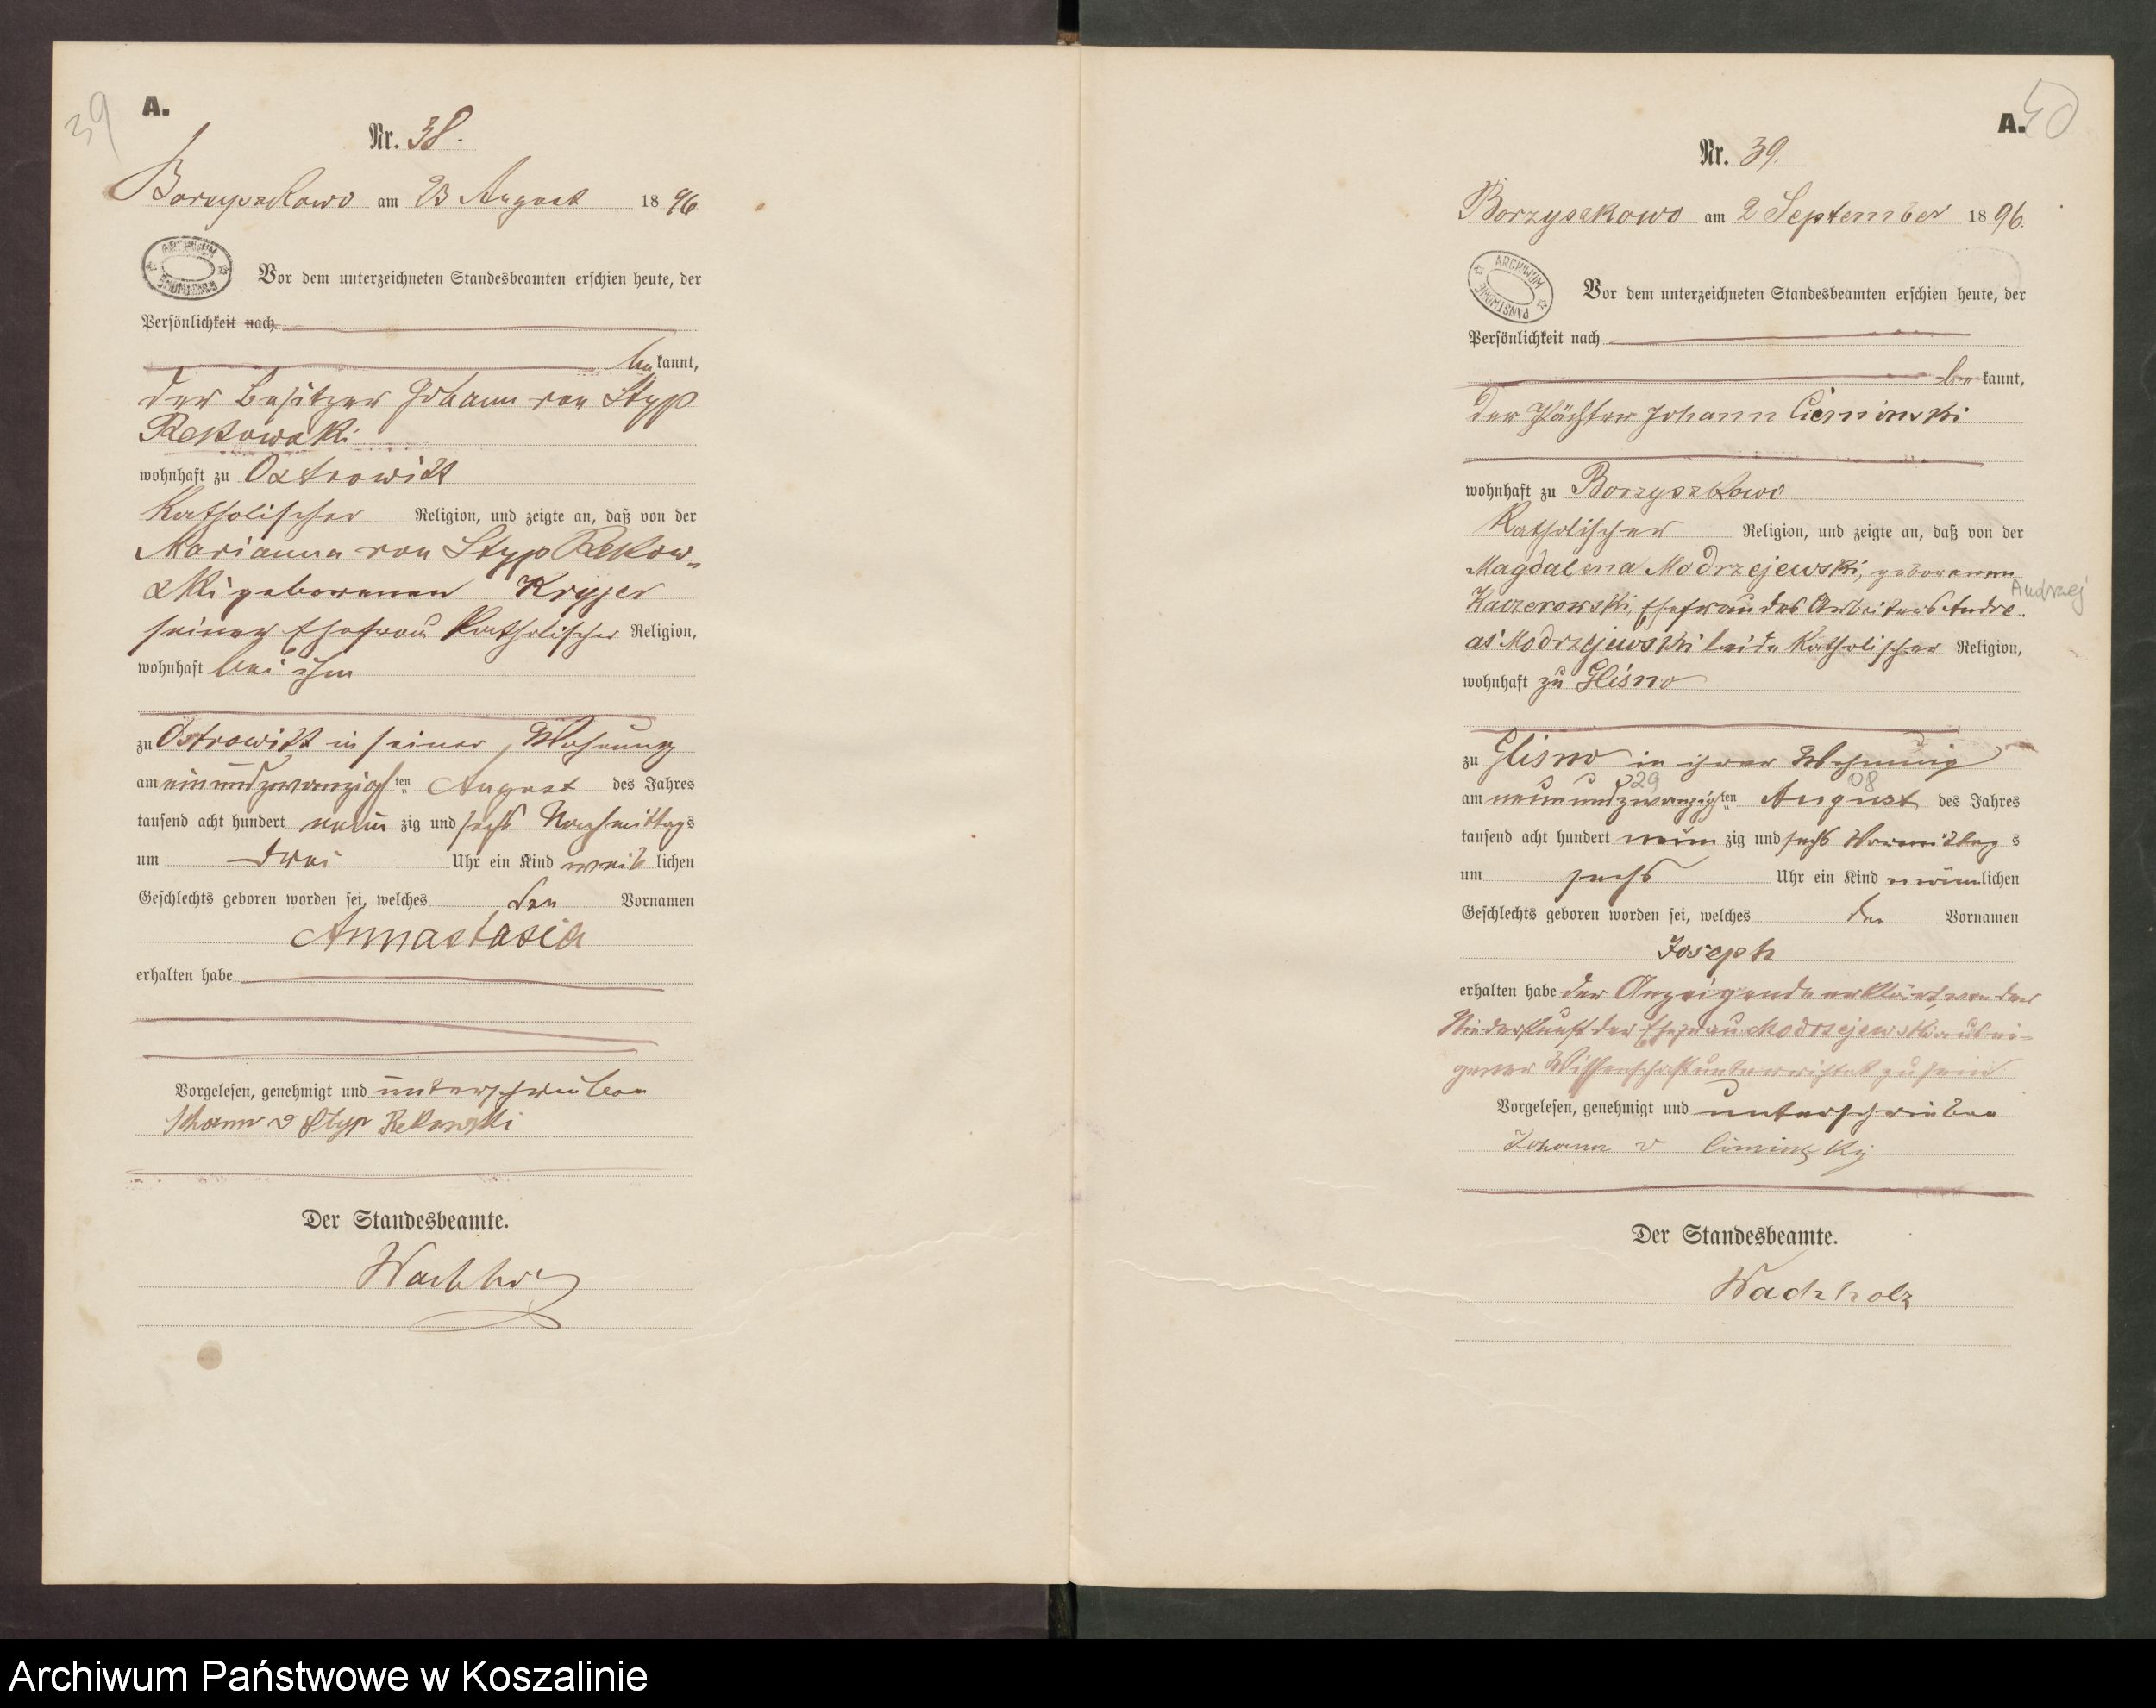 39
A.
Nr. 38.
Borzyszkowo am 23 August 1896
ARCHIWUM PAŃSTWOWE
Vor dem unterzeichneten Standesbeamten erschien heute, der
Persönlichkeit nach
bekannt,
der Besitzer Johann von Styp
Rekowski
wohnhaft zu Ostrowitt
Katholischer Religion, und zeigte an, daß von der
Marianna von Styp Rekow-
ski geborenen
seiner Ehefrau Katholischer Religion,
wohnhaft bei ihm
zu Ostrowitt in seiner Wohnung
am ein und zwanzigsten August des Jahres
tausend acht hundert neun zig und sechs Nachmittags
um drei Uhr ein Kind weiblichen
Geschlechts geboren worden sei, welches den Vornamen
Annastasia
erhalten habe
Vorgelesen, genehmigt und unterschrieben
Johann v Styp Rekowski
Der Standesbeamte.
Wachholz
A.
40
Nr. 39.
Borzyszkowo am 2 September 1896.
ARCHIWUM PAŃSTWOWE
Vor dem unterzeichneten Standesbeamten erschien heute, der
Persönlichkeit nach
bekannt,
der Pächter Johann Cieminski
wohnhaft zu Borzyszkowo
Katholischer Religion, und zeigte an, daß von der
Magdalena Modrzejewski, geborenen
Andrzej
Ehefrau des Arbeiters Andre-
as Modrzejewski beide Katholischer Religion,
wohnhaft zu Glisno
zu Glisno in ihrer Wohnung
29 08
am neun und zwanzigsten August des Jahres
tausend acht hundert neun zig und sechs Vormittags
um sechs Uhr ein Kind männlichen
Geschlechts geboren worden sei, welches den Vornamen
Joseph
erhalten habe der Anzeigende erklärt, von der
Niederkunft der Ehefrau Modrzejewski aus ei-
gener Wissenschaft unterrichtet zu sein
Vorgelesen, genehmigt und unterschrieben
Johann v
Der Standesbeamte.
Wachholz
Archiwum Państwowe w Koszalinie